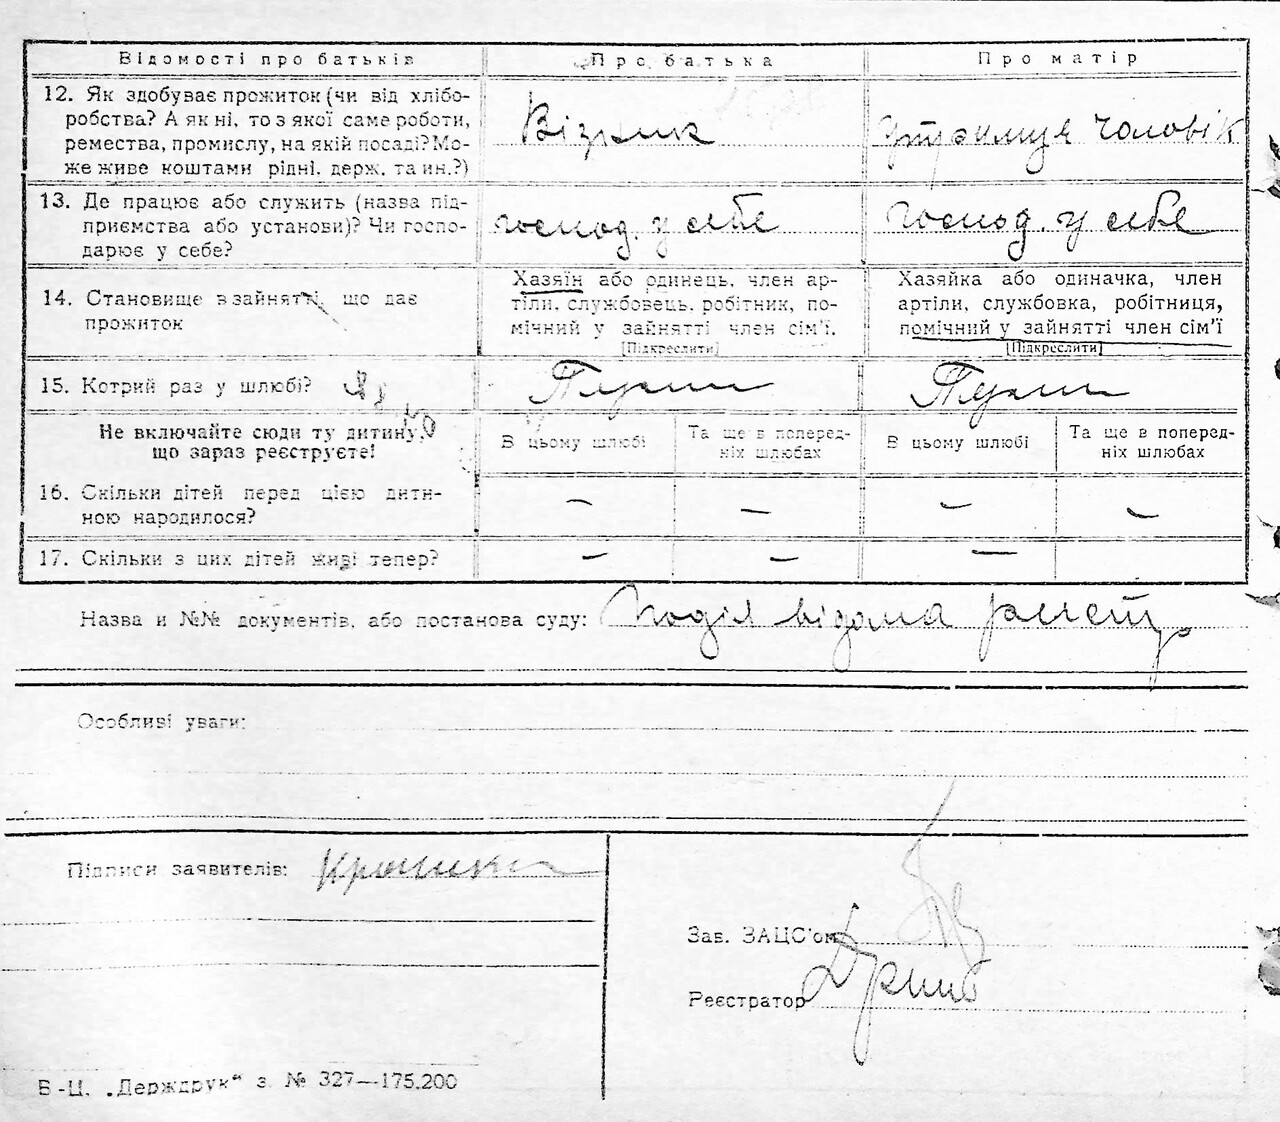 Відомості про батьків Про батька Про матір
12. Як здобуває прожиток (чи від хлібо-
робства? А як ні, то з якої саме роботи,
ремества, промислу, на якій посаді? Мо-
же живе коштами рідні. держ. та ин.?)
Візник
утримує чоловік
13. Де працює або служить (назва під-
приємства або установи)? Чи госпо-
дарює у себе?
господ. у себе
господ. у себе
14. Становище в зайнятті, що дає
прожиток
Хазяїн або одинець, член ар-
тіли, службовець, робітник, по-
мічний у зайнятті член сім'ї.
[Підкреслити]
Хазяйка або одиначка, член
артіли, службовка, робітниця,
помічний у зайнятті член сім'ї
[Підкреслити]
15. Котрий раз у шлюбі?
Не включайте сюди ту дитину,
що зараз реєструєте!
В цьому шлюбі
Та ще в поперед-
ніх шлюбах
В цьому шлюбі
Та ще в поперед-
ніх шлюбах
16. Скільки дітей перед цією дити-
ною народилося?
— — — —
17. Скільки з цих дітей живі тепер?
— — —
Назва и №№ документів, або постанова суду: Подія відома
Особливі уваги:
Підписи заявителів:
Зав. ЗАЦС'ом
Реєстратор
Б-Ц. „Держдрук“ з. № 327—175.200